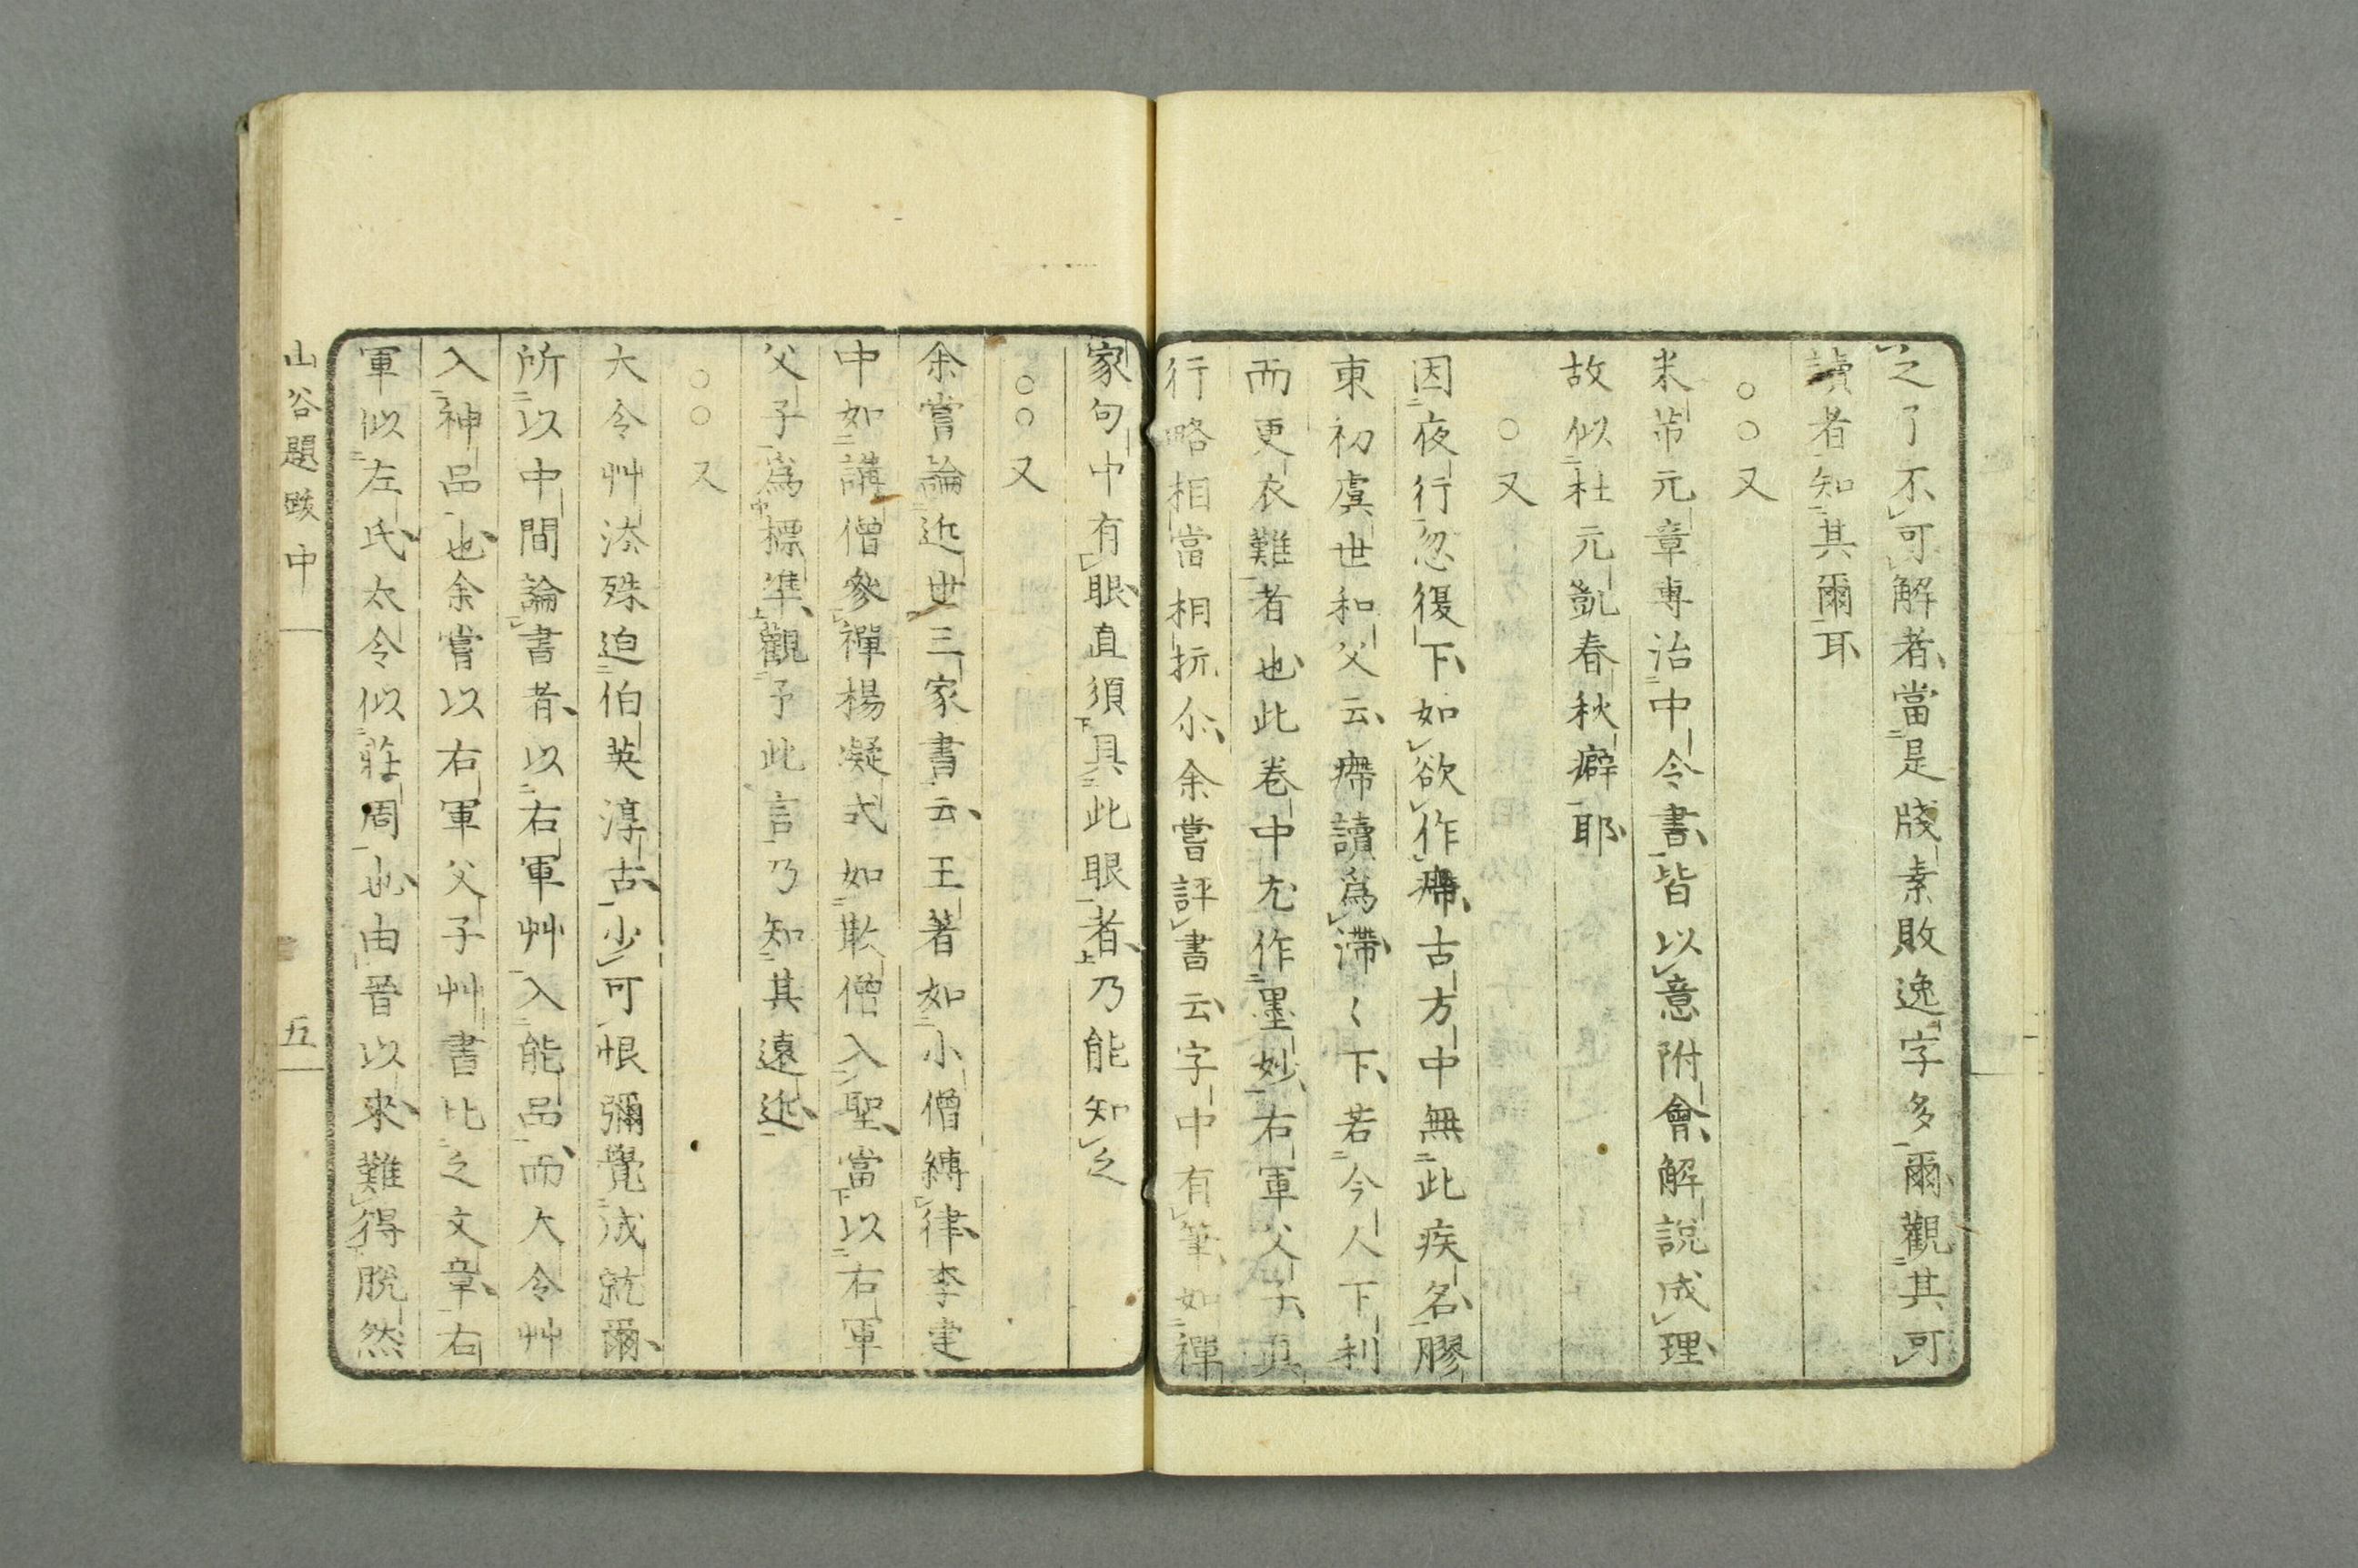 之了不可解者當是牋素敗逸字多爾觀其可
讀者知其爾耳
○○又
米芾元章專治中令書皆以意附會解說成理
故似杜元凱春秋癖耶
○又
因夜行忽復下如欲作㿃古方中無此疾名膠
東初虞世和父云㿃讀爲滯〻下若今人下利
而更衣難者也此卷中尤作墨妙右軍父子真
行略相當相抗尒余嘗評書云字中有筆如禪
家句中有眼直須具此眼者乃能知之
○○又
余嘗論近世三家書云王著如小僧縛律李建
中如講僧參禪楊凝式如散僧入聖當以右軍
父子爲標準觀予此言乃知其遠近
○○又
大令艸法殊迫伯英淳古少可恨彌覺成就爾
所以中間論書者以右軍艸入能品而大令艸
入神品也余嘗以右軍父子艸書比之文章右
軍似左氏太令似莊周也由晉以來難得脫然
山谷題跋中
五